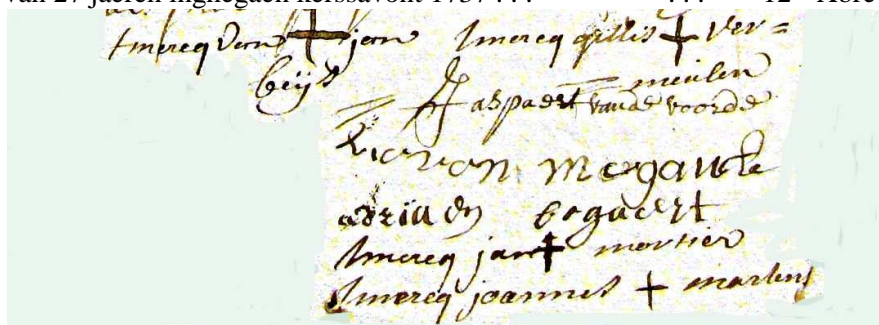 van 27 jaeren nigheg aen kerssavont 1737 . . . . . . 12
tmercq van + jan tmercq gillis + ver=
beijst meulen
Jaspaert vande voorde
Gioron megancke
adriaen bogaert
tmercq jan + mortier
tmercq joannes + martens